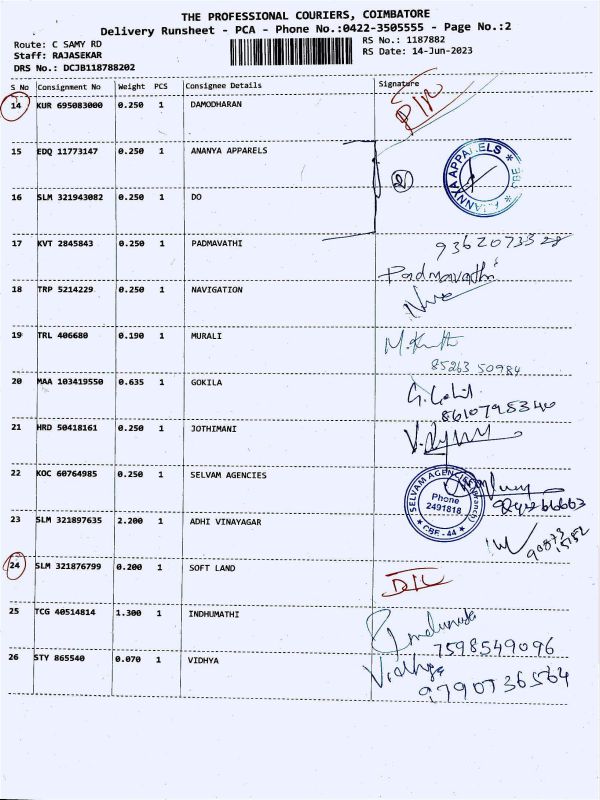 THE PROFESSIONAL COURIERS, COIMBATORE
Delivery Runsheet - PCA - Phone No.:0422-3505555 - Page No.:2
Route: C SAMY RD
Staff: RAJASEKAR
DRS No.: DCJB118788202
RS No.: 1187882
RS Date: 14-Jun-2023
S No Consignment No Weight PCS Consignee Details Signature
14 KUR 695083000 0.250 1 DAMODHARAN
15 EDQ 11773147 0.250 1 ANANYA APPARELS
2
ANANYA APPARELS * CBE *
16 SLM 321943082 0.250 1 DO
17 KVT 2845843 0.250 1 PADMAVATHI
9362073328
Padmavathi
18 TRP 5214229 0.250 1 NAVIGATION
19 TRL 406680 0.190 1 MURALI
85263 50984
20 MAA 103419550 0.635 1 GOKILA
8610795340
21 HRD 50418161 0.250 1 JOTHIMANI
22 KOC 60764985 0.250 1 SELVAM AGENCIES
SELVAM AGENCIES
Phone
2491818
* CBE - 44 *
23 SLM 321897635 2.200 1 ADHI VINAYAGAR
24 SLM 321876799 0.200 1 SOFT LAND
25 TCG 40514814 1.300 1 INDHUMATHI
7598549096
26 STY 865540 0.070 1 VIDHYA
Vidhya